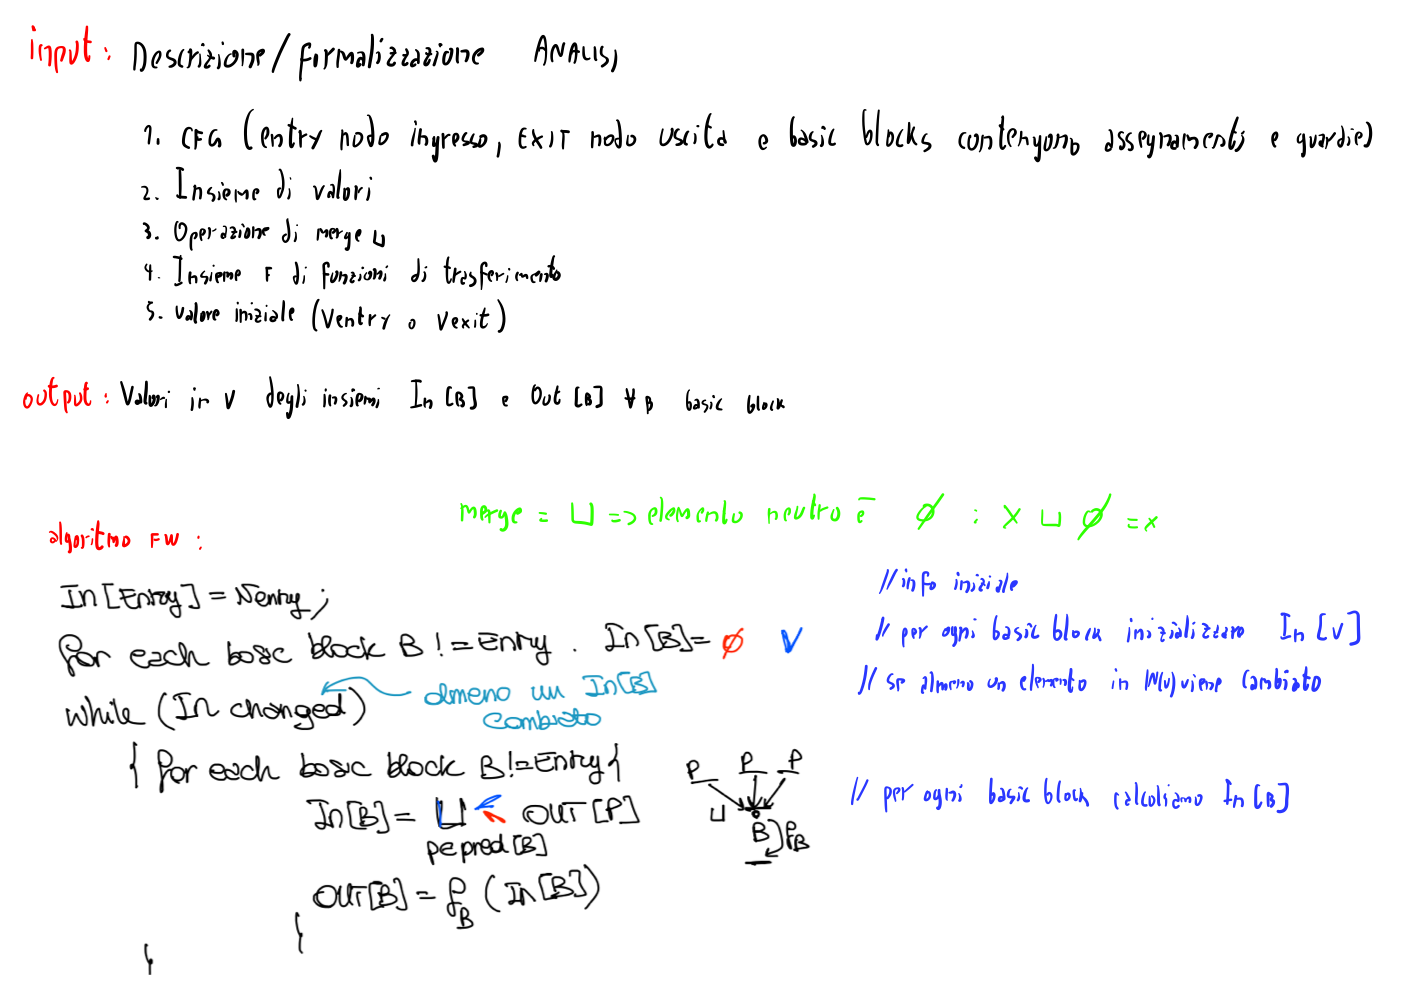 input: Descrizione/formalizzazione ANALISI
1. CFG (entry nodo ingresso, EXIT nodo uscita e basic blocks contengono assegnamenti e guardie)
2. Insieme di valori
3. Operazione di merge ⊔
4. Insieme F di funzioni di trasferimento
5. valore iniziale (Ventry o Vexit)
output: Valori in V degli insiemi In [B] e Out [B] ∀B basic block
merge = ⊔ => elemento neutro è ∅ : x ⊔ ∅ = x
algoritmo FW:
In [Entry] = Ventry; //info iniziale
for each basic block B != Entry. In[B]= ∅ V // per ogni basic block inizializzano In [V]
while (In changed) almeno un In[B] cambiato // se almeno un elemento in IN(v) viene cambiato
{ for each basic block B!=Entry{
P P P
In[B]= ⊔ OUT[P] // per ogni basic block calcoliamo In[B]
p∈pred[B]
⊔ B fB
OUT[B] = fB (In[B])
}
}